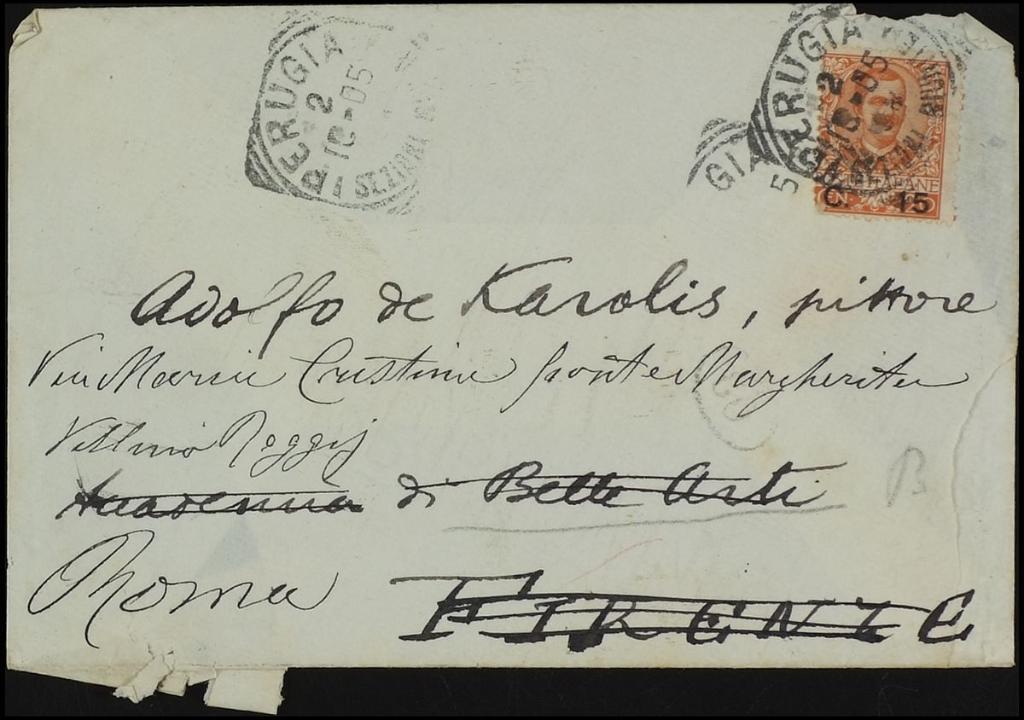 PERUGIA
2
10-05
PERUGIA
2
10-05
GIA
5
C. 15
Adolfo de Karolis, pittore
Via Maria Cristina ponte Margherita
Villino
Accademia di Belle Arti
B
Roma
FIRENZE